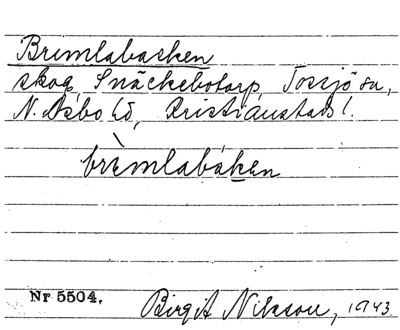 Bremlabacken
skog, Snäckebotorp, Tossjö sn,
N. Åsbo hd, Kristianstads l.
brèmlabáken
Nr 5504. Birgit Nilsson, 1943